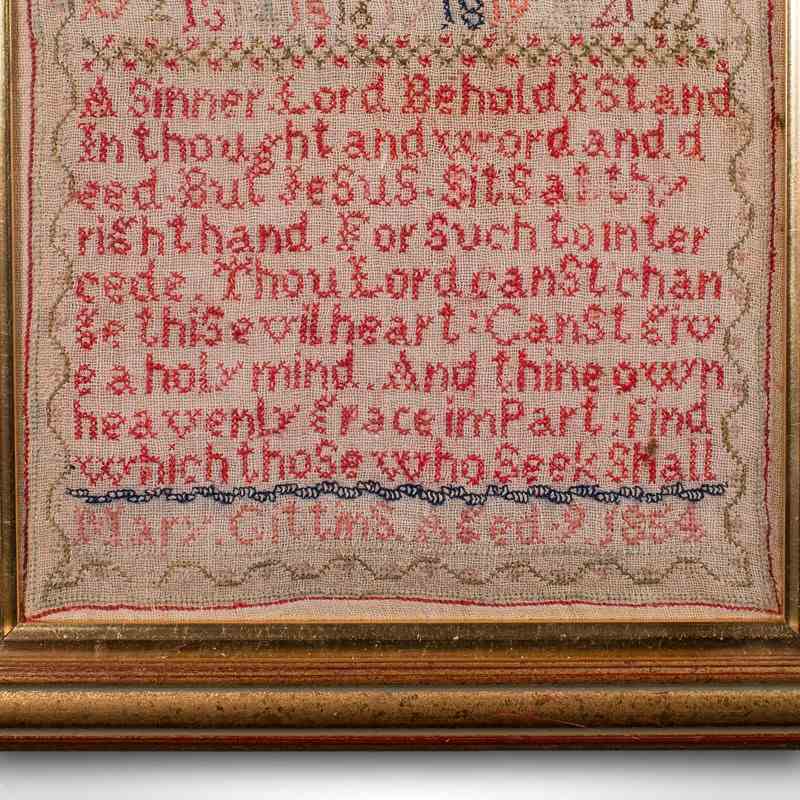 13 18 18 19 21 22
A Sinner Lord Behold I Stand
In thought and word and d
eed. But JeSuS. SitS at thy
right hand. For Such to inter
cede. Thou Lord canSt chan
ge thiS evil heart : CanSt giv
e a holy mind.. And thine own
heavenly grace imPart : find
which thoSe who Seek Shall
Mary. Gittins. Aged. 9 1854